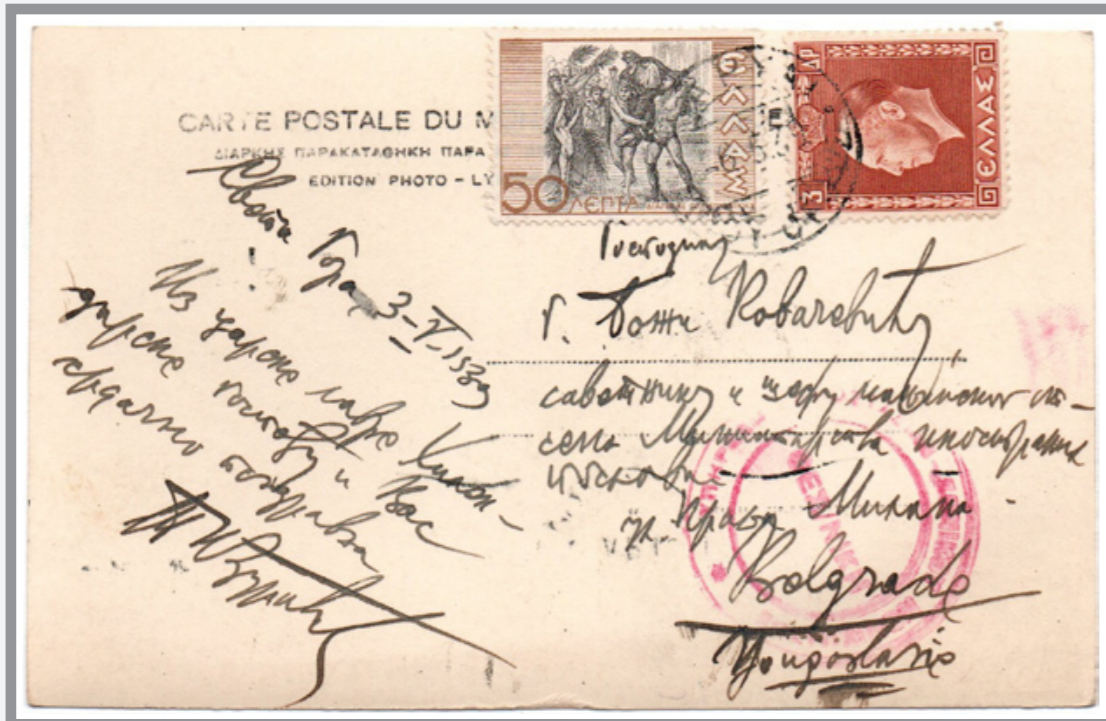 CARTE POSTALE DU M
ΔΙΑΡΚΗΣ ΠΑΡΑΚΑΤΑΘΗΚΗ ΠΑΡΑ
EDITION PHOTO - LY
50 ΛΕΠΤΑ
ΕΛΛΑΣ
3 ΔΡ
ΕΛΛΑΣ
Света Гора 3-V-1939
Из царске лавре Хилан-
дарске поштову и Вас
срдачно поздравља
Господину
Г. Божи Ковачевићу
саветнику и шефу
Министарства иностраних
послова
ул. Краља Милана
Belgrade
Yougoslavie